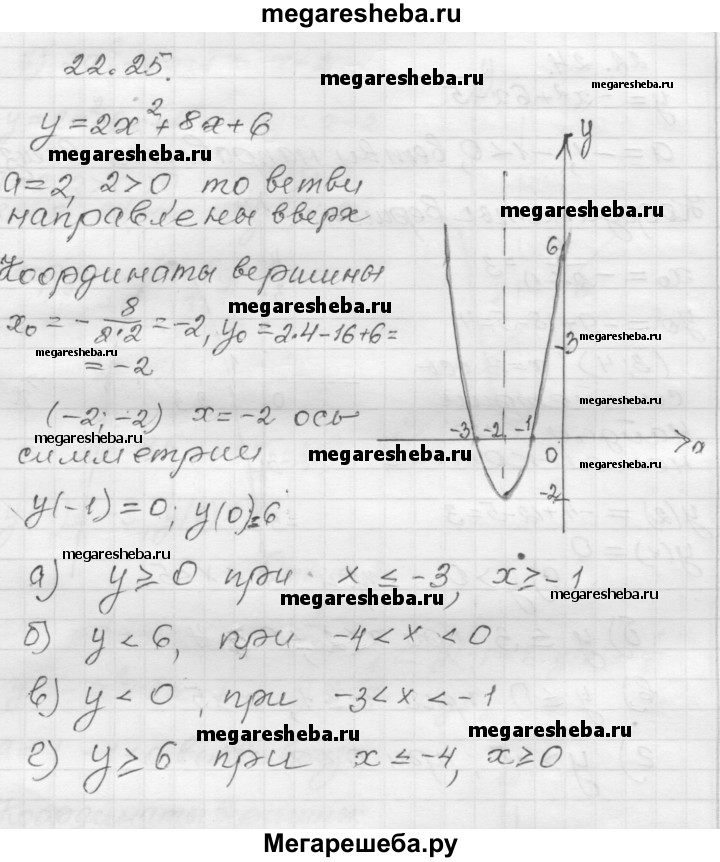 megaresheba.ru
22.25.
megaresheba.ru
megaresheba.ru
y=2x²+8x+6
megaresheba.ru
a=2, 2>0 то ветви
направлены вверх
megaresheba.ru
Координаты вершины
megaresheba.ru
x₀ = - 8/(2·2) = -2, y₀ = 2·4-16+6=
megaresheba.ru
= -2
megaresheba.ru
(-2; -2) x = -2 ось
megaresheba.ru
симметрии
megaresheba.ru
megaresheba.ru
y(-1) = 0; y(0)=6
y
6
3
-3 -2 -1
0
x
-2
megaresheba.ru
а) y ≥ 0 при x ≤ -3, x ≥ -1
megaresheba.ru
megaresheba.ru
б) y < 6, при -4 < x < 0
в) y < 0, при -3 < x < -1
megaresheba.ru
megaresheba.ru
г) y ≥ 6 при x ≤ -4, x ≥ 0
Мегарешеба.ру